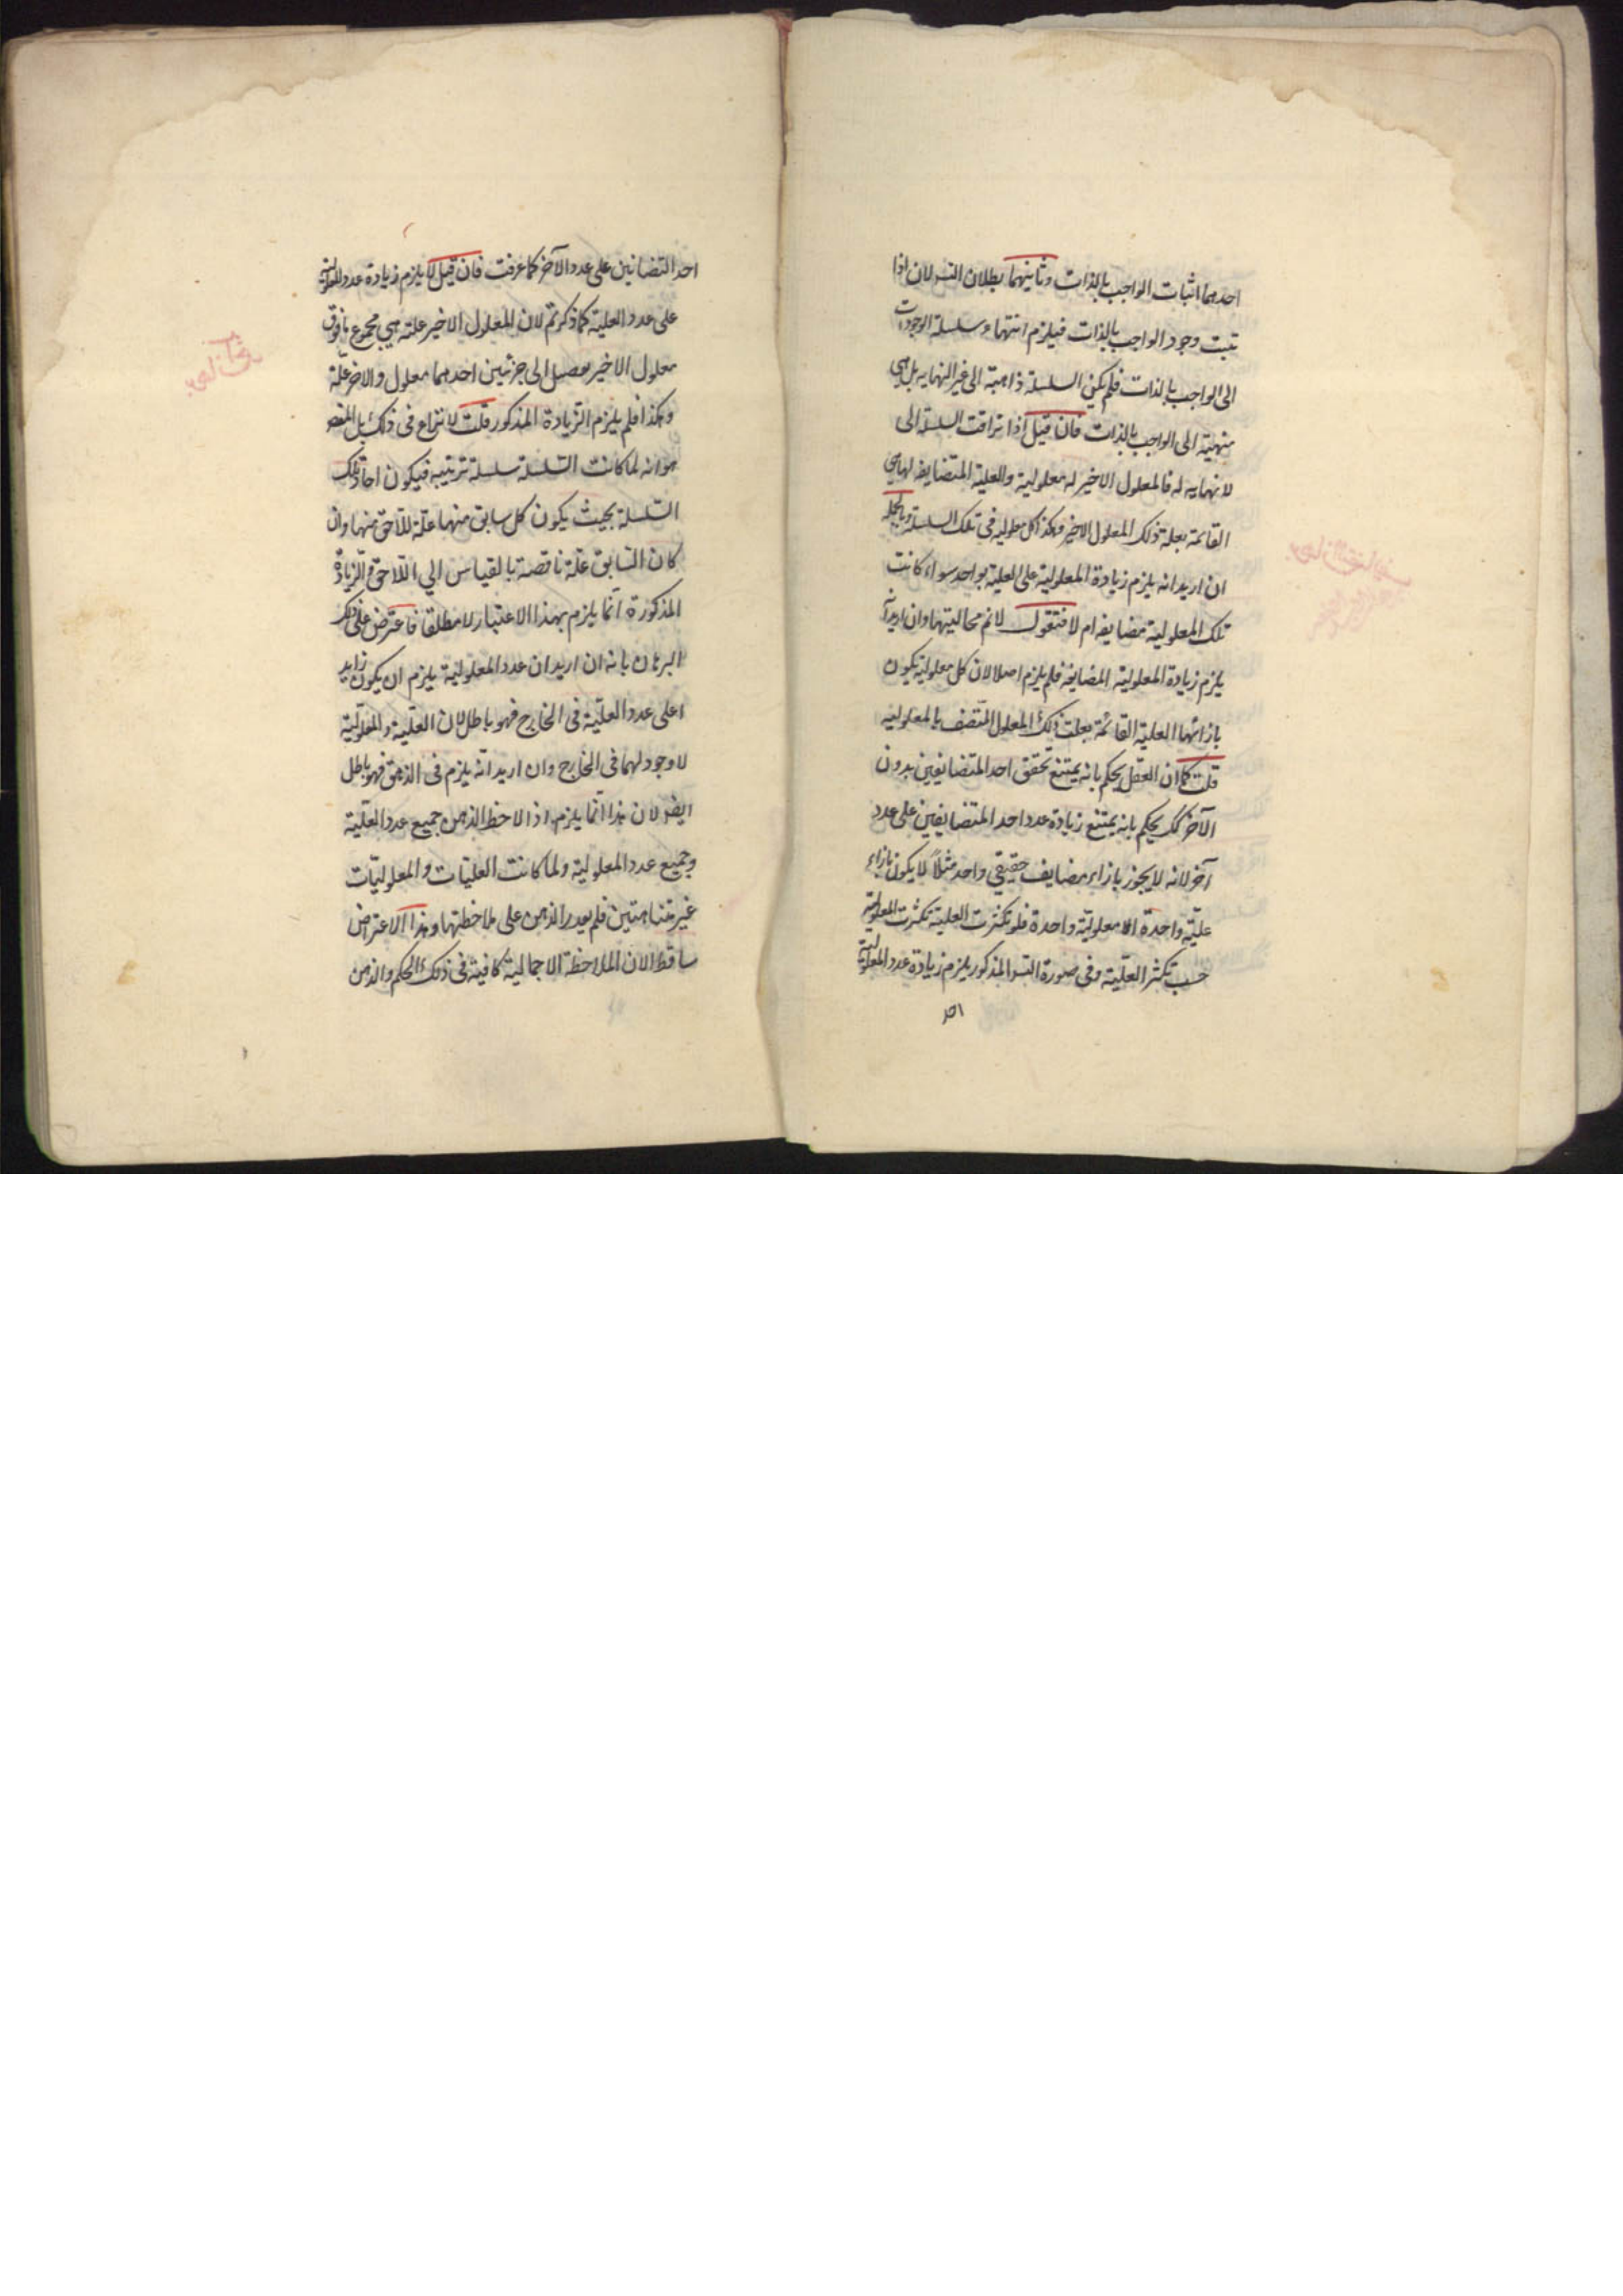 احدهما اثبات الواجب بالذات وثانيهما بطلان التسـ لان اذا
ثبت وجود الواجب بالذات فيلزم انتهاء سلسلة الوجودات
الى الواجب بالذات فلم يكن السلسلة ذاهبة الى غير النهايه بل هي
منتهية الى الواجب بالذات فان قيل اذا تراقت السلسلة الى
لا نهايه له فالمعلول الاخير له معلولية والعلية المتضايفه لها هي
القائمة بعلة ذلك المعلول الاخير وهكذا كل معلوليه في تلك السلسلة وبالجمله
ان اريد انه يلزم زيادة المعلولية على العلية بواحد سواء كانت
تلك المعلولية مضايفه ام لا فنقول لانم محاليتها وان اريد انه
يلزم زيادة المعلولية المضايفة فلم يلزم اصلا لان كل معلولية يكون
بازائها العلية القائمة بعلت ذلك المعلول المتصف بالمعلوليه
قلت كما ان العقل يحكم بانه يمتنع تحقق احد المتضايفين بدون
الآخر كك يحكم بانه يمتنع زيادة عدد احد المتضايفين على عدد
آخر لانه لا يجوز بازاء مضايف حقيقي واحد مثلاً لا يكون بازاء
علية واحدة الا معلولية واحدة فلو تكثرت العلية تكثرت المعلولية
حسب تكثر العلية وفى صورة التسـ المذكور يلزم زيادة عدد المعلولية
احد
احد التضائين على عدد الآخر كما عرفت فان قيل لا يلزم زيادة عدد المعلولية
على عدد العلية كما ذكرتم لان المعلول الاخير علته هي مجموع ما فوق
معلول الاخير الى جزئين احدهما معلول والاخر علّة
وهكذا فلم يلزم الزيادة المذكور قلت لا نزاع فى ذلك بل المقصـ
هو انه لما كانت السلسلة سلسلة ترتيبيه فيكون احاد تلك
السلسلة بحيث يكون كل سابق منها علة للاحق منها وان
كان السابق علة ناقصة بالقياس الي اللاحق والزيادة
المذكورة انما يلزم بهذا الاعتبار لا مطلقا فاعترض على ذلك
البرهان بانه ان اريد ان عدد المعلولية يلزم ان يكون زايد
اعلى عدد العلية فى الخارج فهو باطل لان العلية والمعلولية
لا وجود لهما فى الخارج وان اريد انه يلزم فى الذهن فهو باطل
ايضـ لان هذا انما يلزم اذا لاحظ الذهن جميع عدد العلية
وجميع عدد المعلولية ولما كانت العليات والمعلوليات
غير متناهتين فلم يقدر الذهن على ملاحظتها وهذا الاعتراض
ساقط الان الملاحظة الاجمالية كافية فى ذلك الحكم والذهن